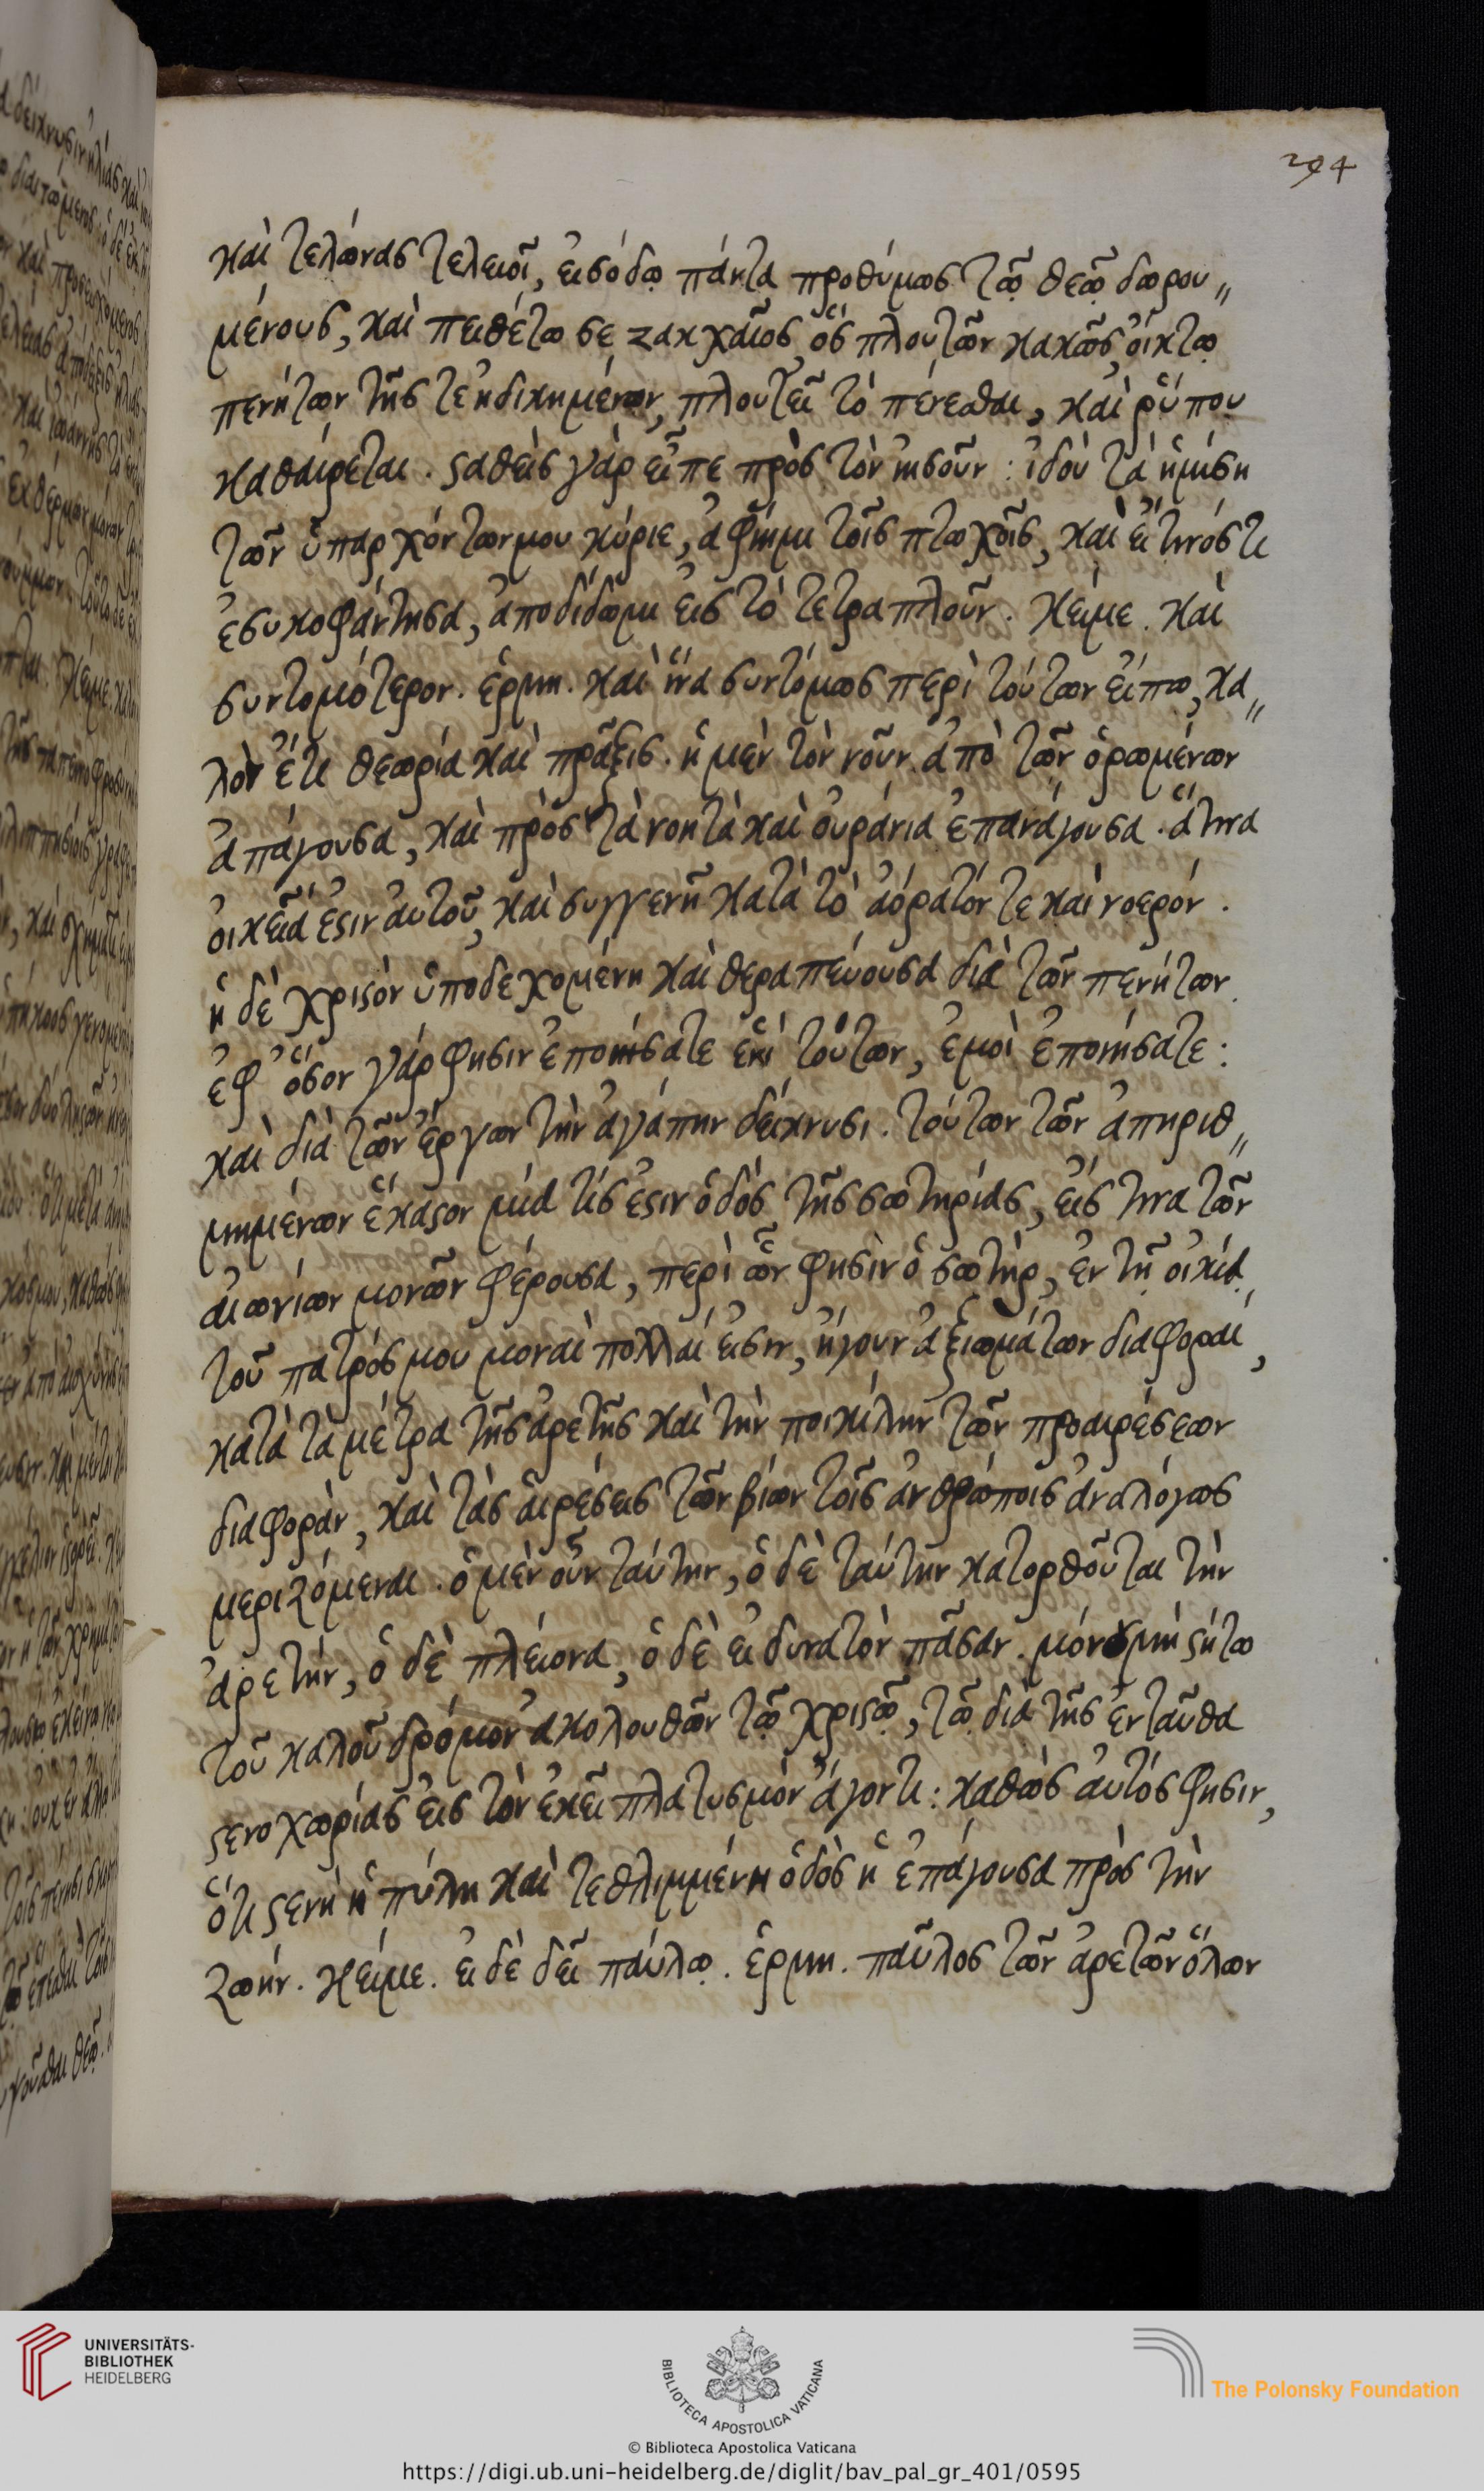 294
καὶ τελώνας τελειοῖ, εἰσόδῳ πάντα προθύμως τῷ θεῷ δωρου〃
μένους, καὶ πειθέτω σε ζακχαῖος, ὃς πλουτῶν κακῶς, οἴκτῳ
πενήτων τῆς τε ἠδικημένων, πλουτεῖ τὸ πένεσθαι, καὶ ῥύπου
καθαίρεται. σταθεὶς γὰρ εἶπε πρὸς τὸν ἰησοῦν: ἰδοὺ τὰ ἡμίση
τῶν ὑπαρχόντων μου κύριε, ἀφίημι τοῖς πτωχοῖς, καὶ εἴ τινός τι
ἐσυκοφάντησα, ἀποδίδωμι εἰς τὸ τετραπλοῦν. κείμε. καὶ
συντομότερον. ἑρμη. καὶ ἵνα συντόμως περὶ τούτων εἴπω, κα〃
λὸν ἔτι θεωρία καὶ πρᾶξις. ἡ μὲν τὸν νοῦν ἀπὸ τῶν ὁρωμένων
ἀπάγουσα, καὶ πρὸς τὰ νοητὰ καὶ οὐράνια ἐπανάγουσα. ἅτινα
οἰκεῖά ἐστιν αὐτοῦ, καὶ συγγενῆ κατὰ τὸ ἀόρατόν τε καὶ νοερόν.
ἡ δὲ χριστὸν ὑποδεχομένη καὶ θεραπεύουσα διὰ τῶν πενήτων.
ἐφ ὅσον γάρ φησιν ἐποιήσατε ἑνὶ τούτων, ἐμοὶ ἐποιήσατε:
καὶ διὰ τῶν ἔργων τὴν ἀγάπην δείκνυσι. τούτων τῶν ἀπηριθ〃
μημένων ἕκαστον μία τίς ἐστιν ὁδὸς τῆς σωτηρίας, εἴς τινα τῶν
αἰωνίων μονῶν φέρουσα, περὶ ὧν φησὶν ὁ σωτὴρ, ἐν τῇ οἰκίᾳ
τοῦ πατρός μου μοναὶ πολλαί εἰσιν, ἤγουν ἀξιωμάτων διαφοραί,
κατὰ τὰ μέτρα τῆς ἀρετῆς καὶ τὴν ποικίλην τῶν προαιρέσεων
διαφορὰν, καὶ τὰς αἱρέσεις τῶν βίων τοῖς ἀνθρώποις ἀναλόγως
μεριζόμεναι. ὁ μὲν οὖν ταύτην, ὁ δὲ ταύτην κατορθοῦται τὴν
ἀρετήν, ὁ δὲ πλείονα, ὁ δὲ εἰ δυνατὸν πᾶσαν. μόνον μὴ στήτω
τοῦ καλοῦ δρόμου ἀκολουθῶν τῷ χριστῷ, τῷ διὰ τῆς ἐνταῦθα
στενοχωρίας εἰς τὸν ἐκεῖ πλατυσμὸν ἄγοντι: καθὼς αὐτός φησιν,
ὅτι στενὴ ἡ πύλη καὶ τεθλιμμένη ὁδὸς ἡ ἐπάγουσα πρὸς τὴν
ζωήν. κείμε. εἰ δὲ δεῖ παύλῳ. ἑρμη. παῦλος τῶν ἀρετῶν ὅλων
UNIVERSITÄTS-
BIBLIOTHEK
HEIDELBERG
BIBLIOTECA APOSTOLICA VATICANA
The Polonsky Foundation
© Biblioteca Apostolica Vaticana
https://digi.ub.uni-heidelberg.de/diglit/bav_pal_gr_401/0595